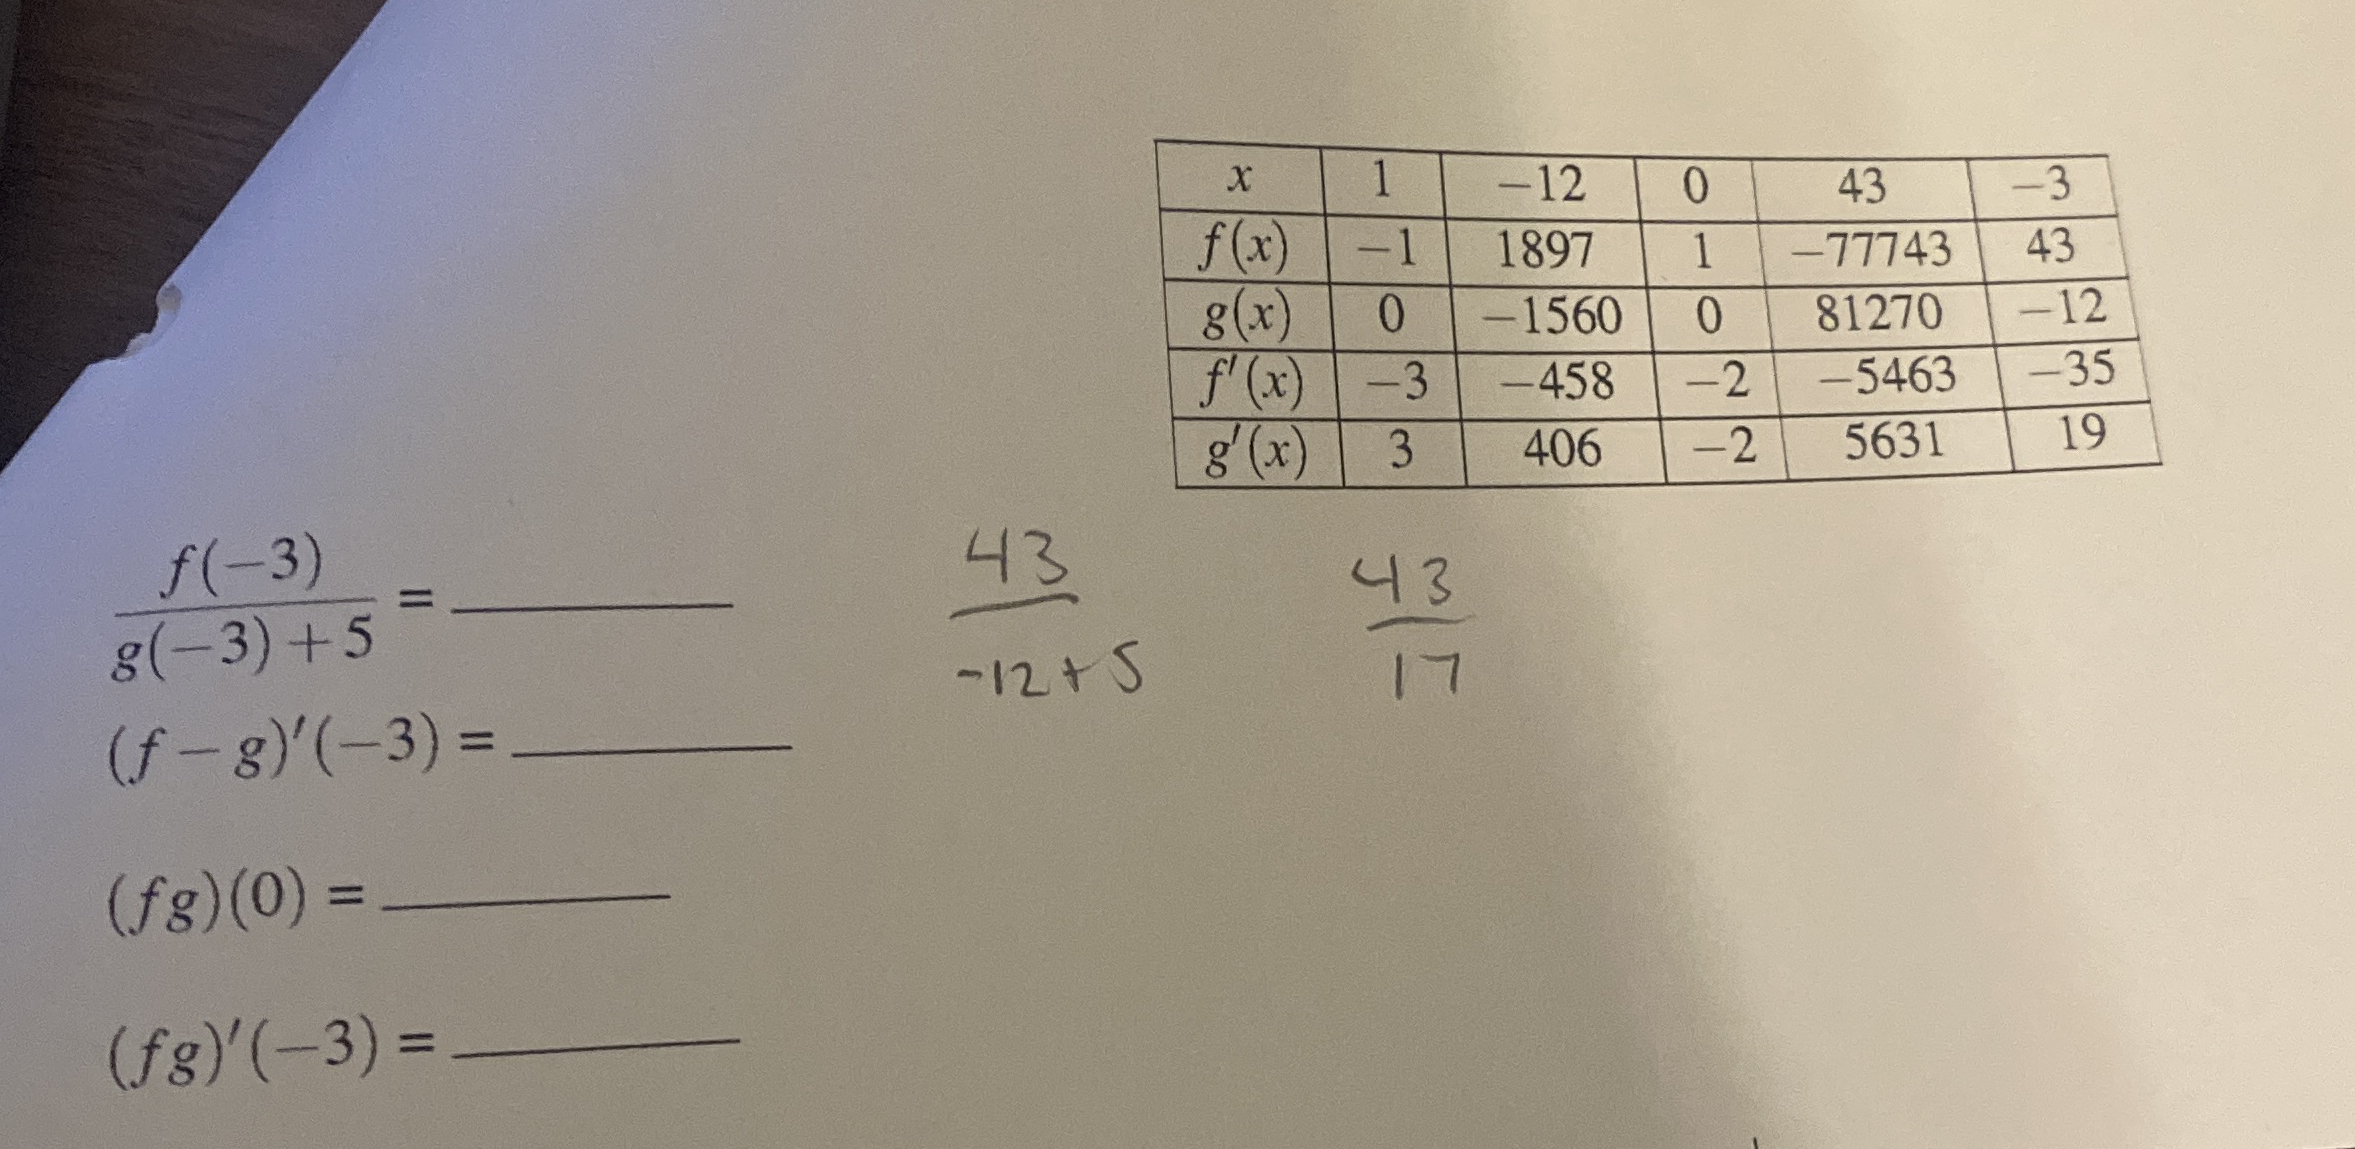 x 1 −12 0 43 −3
f(x) −1 1897 1 −77743 43
g(x) 0 −1560 0 81270 −12
f′(x) −3 −458 −2 −5463 −35
g′(x) 3 406 −2 5631 19
f(−3) 43 43
= ________
g(−3)+5 -12+5 17
(f−g)′(−3) = ________
(fg)(0) = ________
(fg)′(−3) = ________